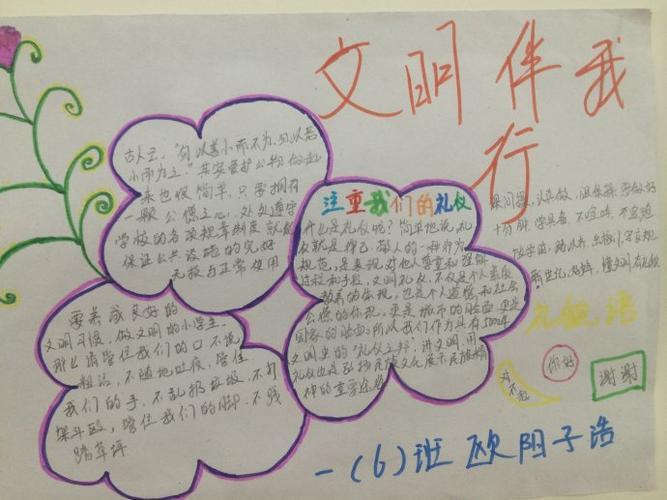 文明伴我
行
古人云："勿以善小而不为，勿以恶
小而为之。"其实爱护公物做起
来也很简单，只要拥有
一颗公德之心，处处遵守
学校的各项规章制度就能
保证公共设施的完好
无损与正常使用
要养成良好的
文明习惯，做文明的小学生。
那么请管住我们的口不说
粗话，不随地吐痰，管住
我们的手，不乱扔垃圾，不打
架斗殴，管住我们的脚，不践
踏草坪
注重我们的礼仪
什么是礼仪呢？简单地说，礼
仪就是律己、敬人的一种行为
规范，是表现对他人尊重和理解
过程和手段，文明礼仪，不仅是个人素质
教养的体现，也是个人道德和社会
公德的体现，更是城市的脸面，更是
国家的脸面，所以我们作为具有5000年
文明史的"礼仪之邦"，讲文明，用
礼仪也是弘扬民族文化展示民族精
神的重要途径
课间操，认真做
十分钟
礼貌语
对不起
你好
谢谢
一(6)班 欧阳子浩